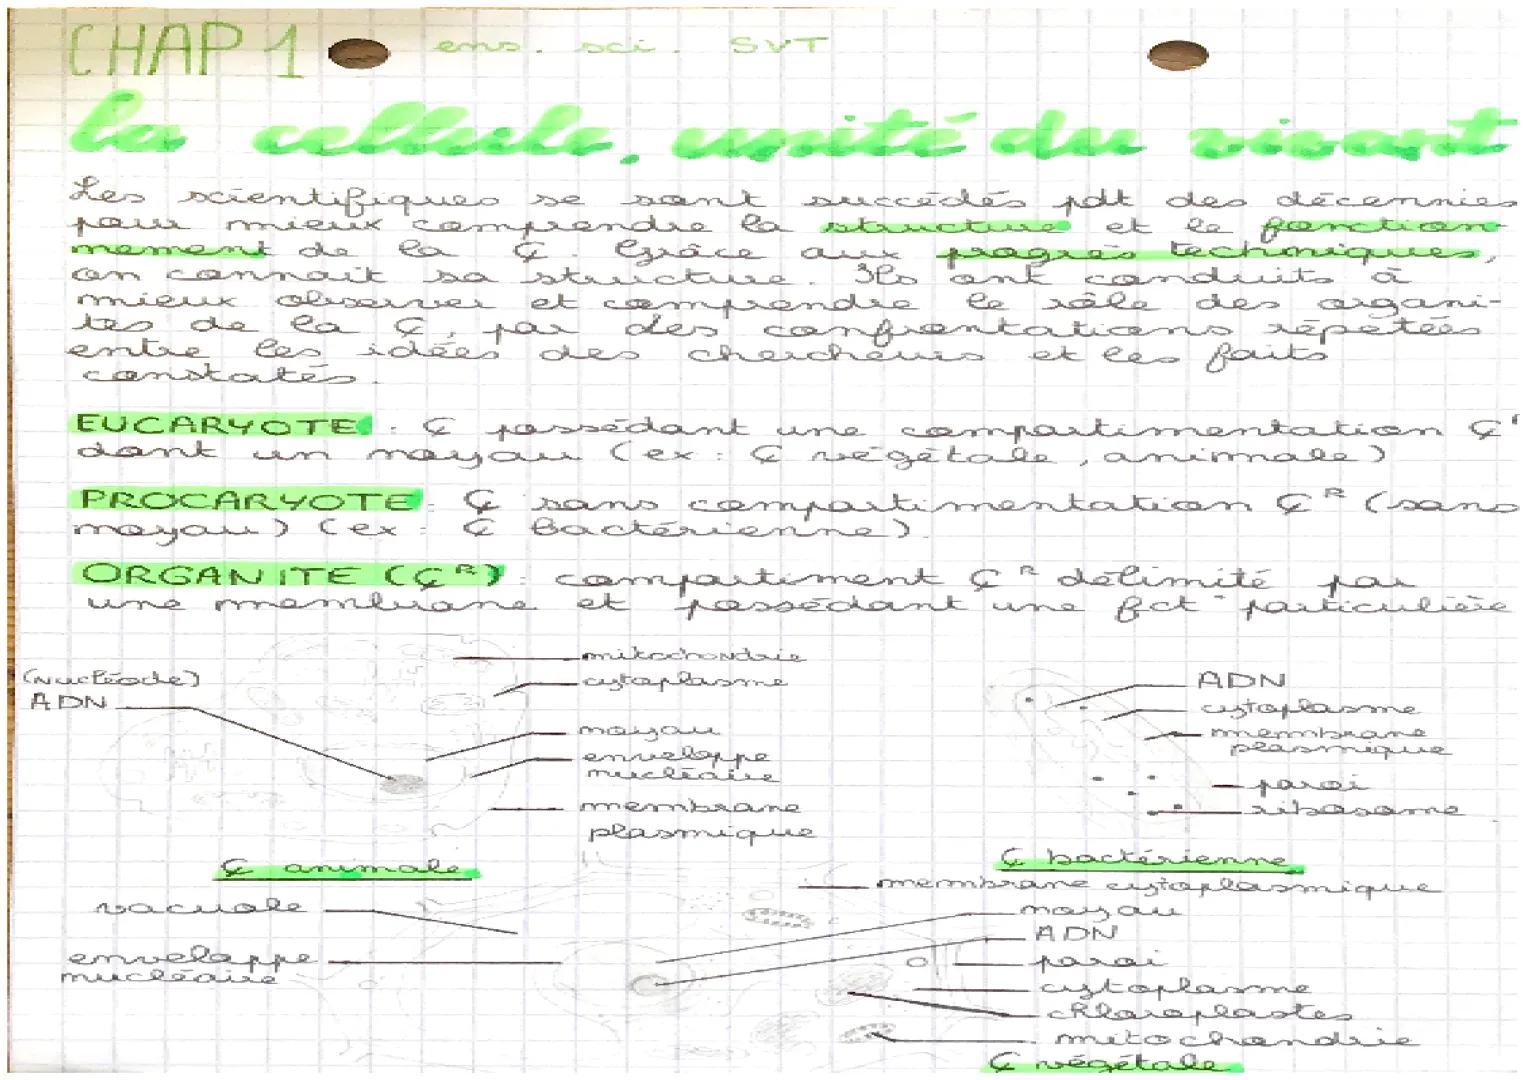 CHAP 1 ens. sci. SVT
La cellule, unité du vivant
Les scientifiques se sont succédés pdt des décennies
pour mieux comprendre la structure et le fonction-
nement de la Ȼ. Grâce aux progrès techniques,
on connait sa structure. Ils ont conduits à
mieux observer et comprendre le rôle des organi-
tes de la Ȼ, par des confrontations répétées
entre les idées des chercheurs et les faits
constatés.
EUCARYOTE : Ȼ possédant une compartimentation Ȼʳ
dont un noyau (ex : Ȼ végétale, animale)
PROCARYOTE : Ȼ sans compartimentation Ȼᴿ (sans
noyau) (ex : Ȼ bactérienne).
ORGANITE (Ȼᴿ) : compartiment Ȼᴿ délimité par
une membrane et possédant une fct° particulière
(nucléode)
ADN
mitochondrie
cytoplasme
noyau
enveloppe
nucléaire
membrane
plasmique
Ȼ animale
ADN
cytoplasme
membrane
plasmique
paroi
ribosome
Ȼ bactérienne
vacuole
enveloppe
nucléaire
membrane cytoplasmique
noyau
ADN
paroi
cytoplasme
chloroplastes
mitochondrie
Ȼ végétale